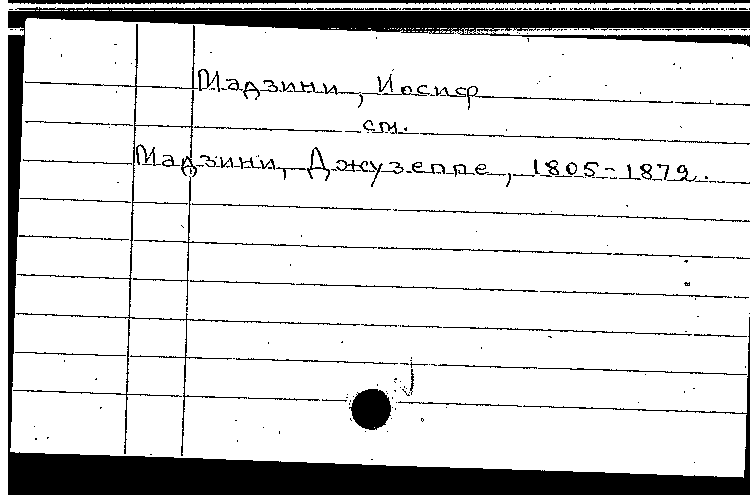 Мадзини, Иосиф
см.
Мадзини, Джузеппе, 1805-1872.